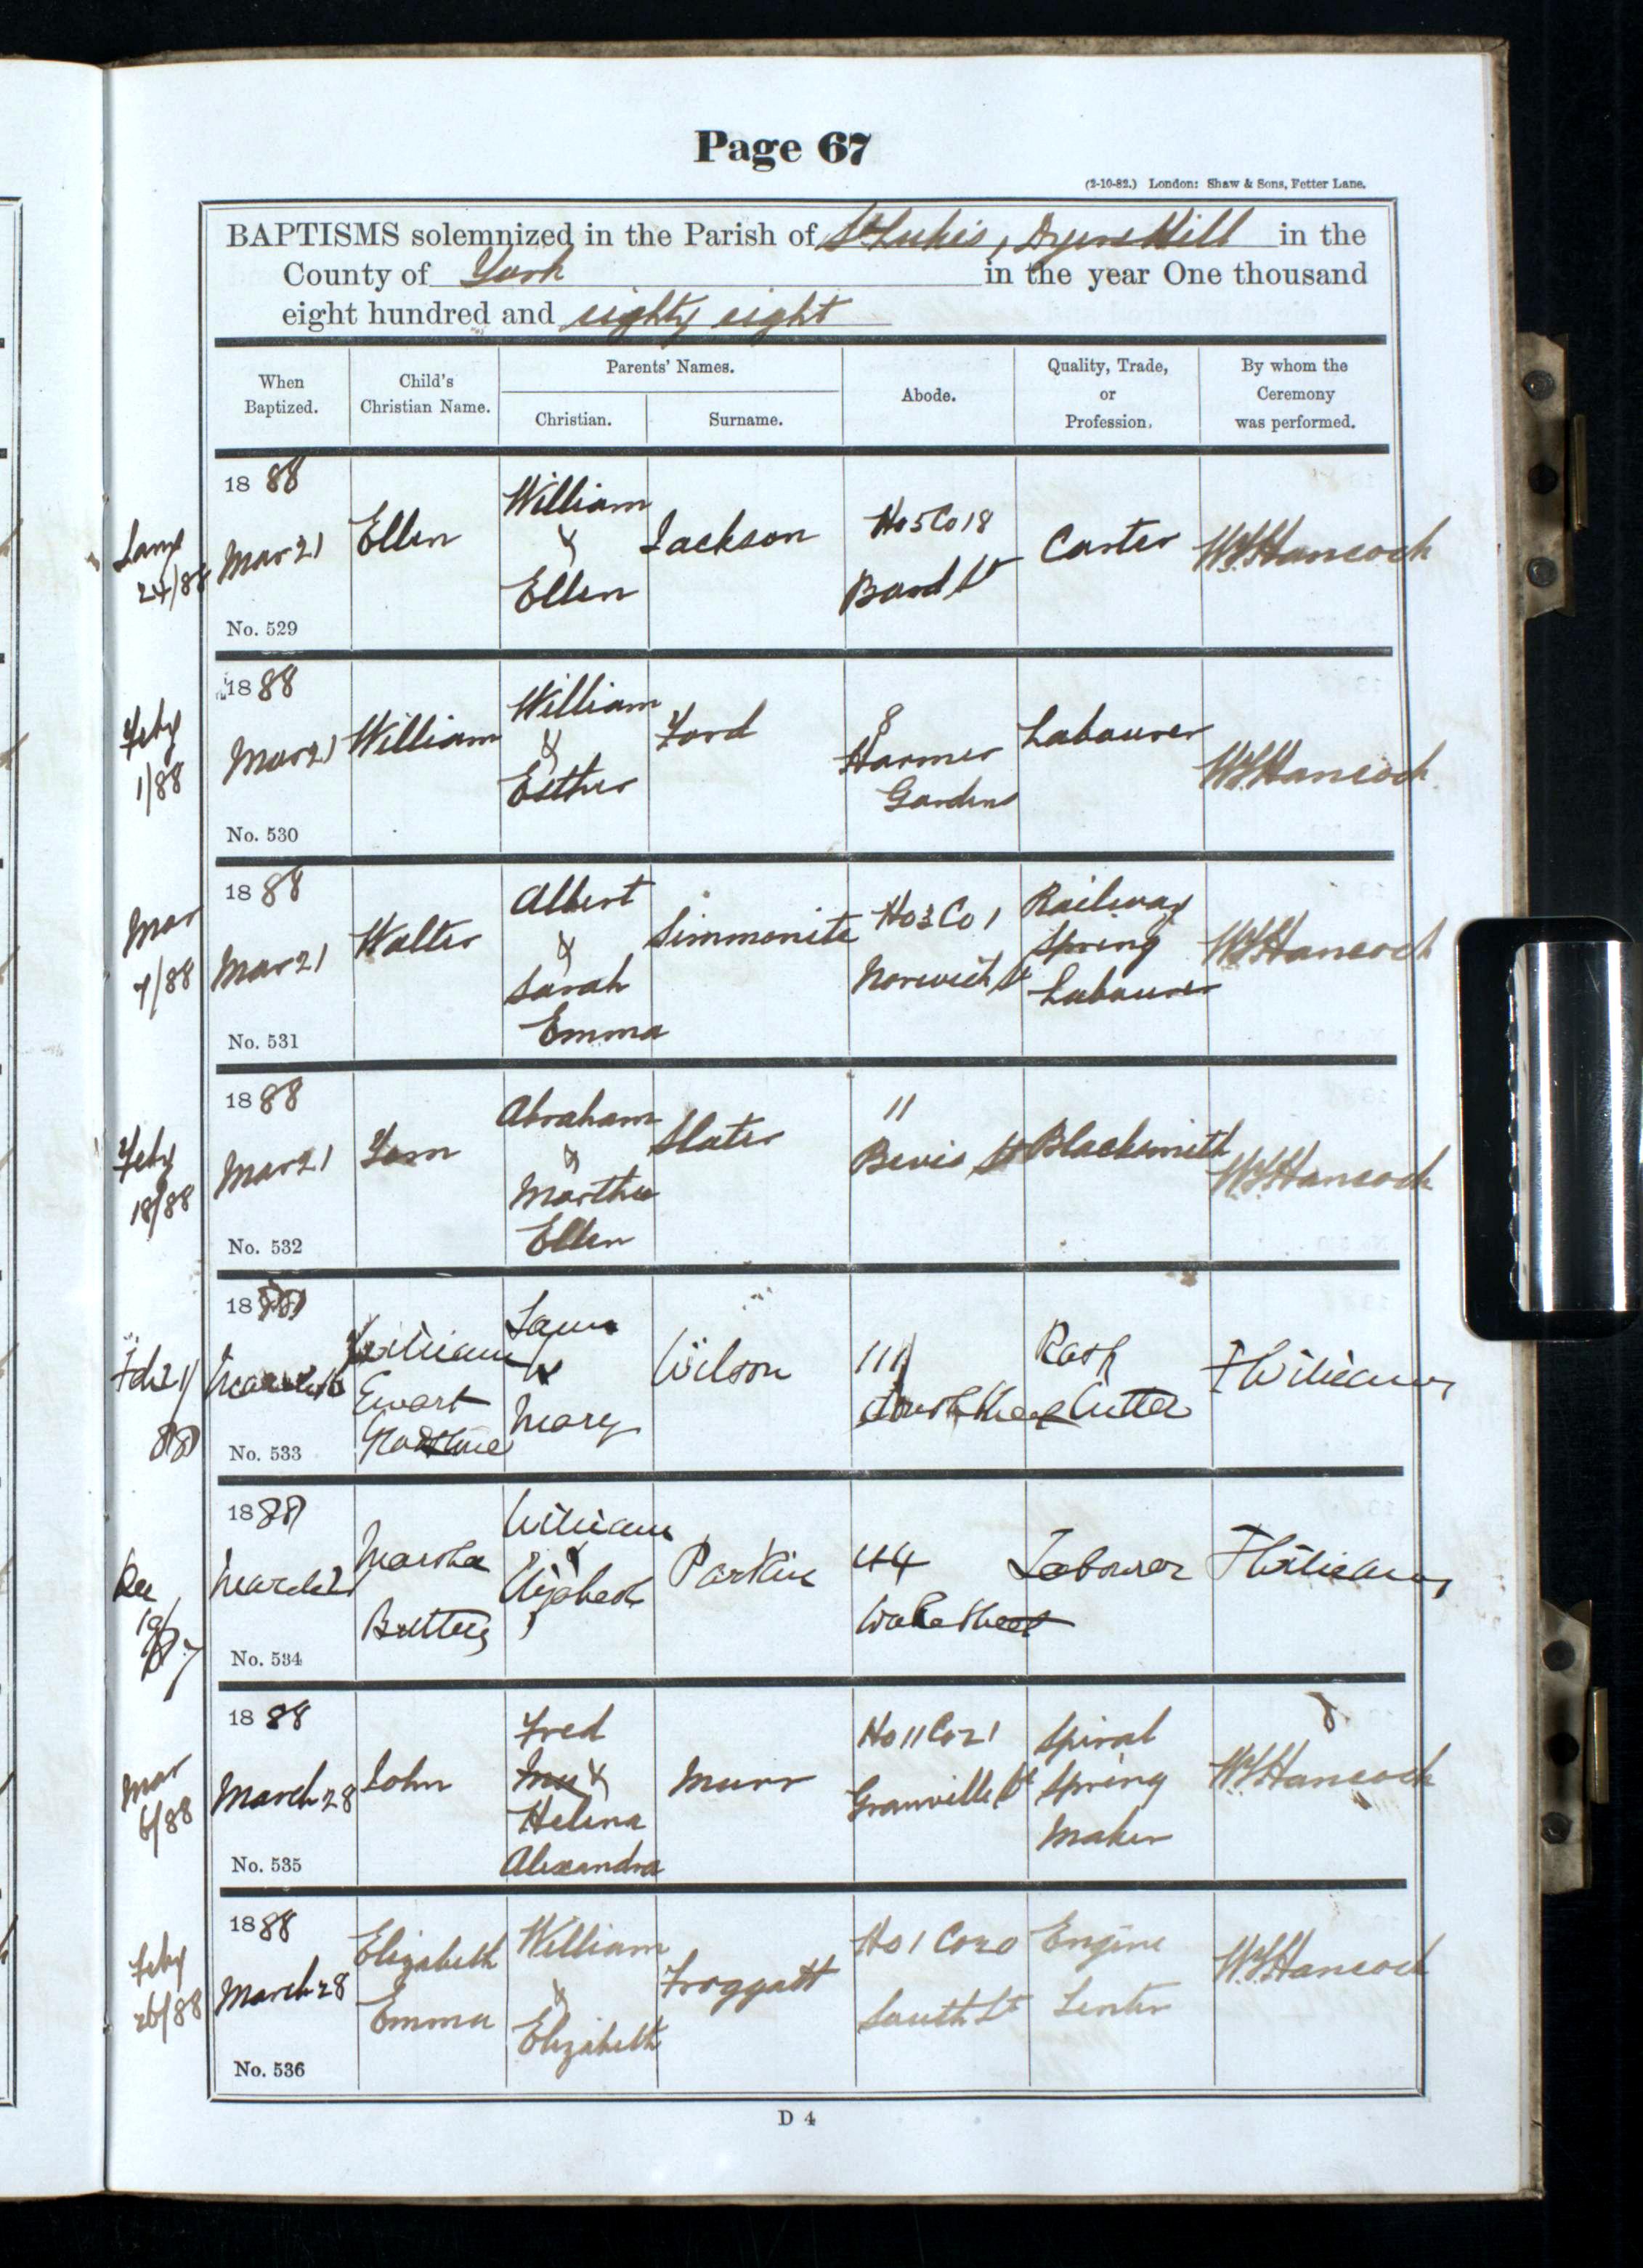 Page 67
(2-10-82.) London: Shaw & Sons, Fetter Lane.
BAPTISMS solemnized in the Parish of St Luke's, Dyers Hill in the
County of York in the year One thousand
eight hundred and eighty eight
When Baptized.
Child's Christian Name.
Parents' Names.
Christian.
Surname.
Abode.
Quality, Trade, or Profession.
By whom the Ceremony was performed.
24/88
1888
Mar 21
No. 529
Ellen
William
&
Ellen
Jackson
Ho 5 Co 18
Bard St
Carter
W.S. Hancock
Feby
1/88
1888
Mar 21
No. 530
William
William
&
Esther
Ford
8
Harmer
Gardens
Labourer
W.S. Hancock
Mar
7/88
1888
Mar 21
No. 531
Walter
Albert
&
Sarah
Emma
Simmonite
Ho 3 Co 1
Norwich St
Railway
Spring
Labourer
W.S. Hancock
Feby
18/88
1888
Mar 21
No. 532
Tom
Abraham
&
Martha
Ellen
Slater
11
Bevis St
Blacksmith
W.S. Hancock
Feb 21
88
1888
No. 533
William
Ewart
Gladstone
&
Mary
Wilson
111
Cutter
F Williams
Dec
18
87
1888
March 21
No. 534
Martha
William
&
Elizabeth
Parkin
44
Wake Street
Labourer
F Williams
Mar
6/88
1888
March 28
No. 535
John
Fred
&
Helena
Alexandra
Murr
Ho 11 Co 21
Granville St
Spiral
Spring
Maker
W.S. Hancock
Feby
26/88
1888
March 28
No. 536
Elizabeth
Emma
William
&
Elizabeth
Froggatt
Ho 1 Co 20
South St
Engine
W.S. Hancock
D 4